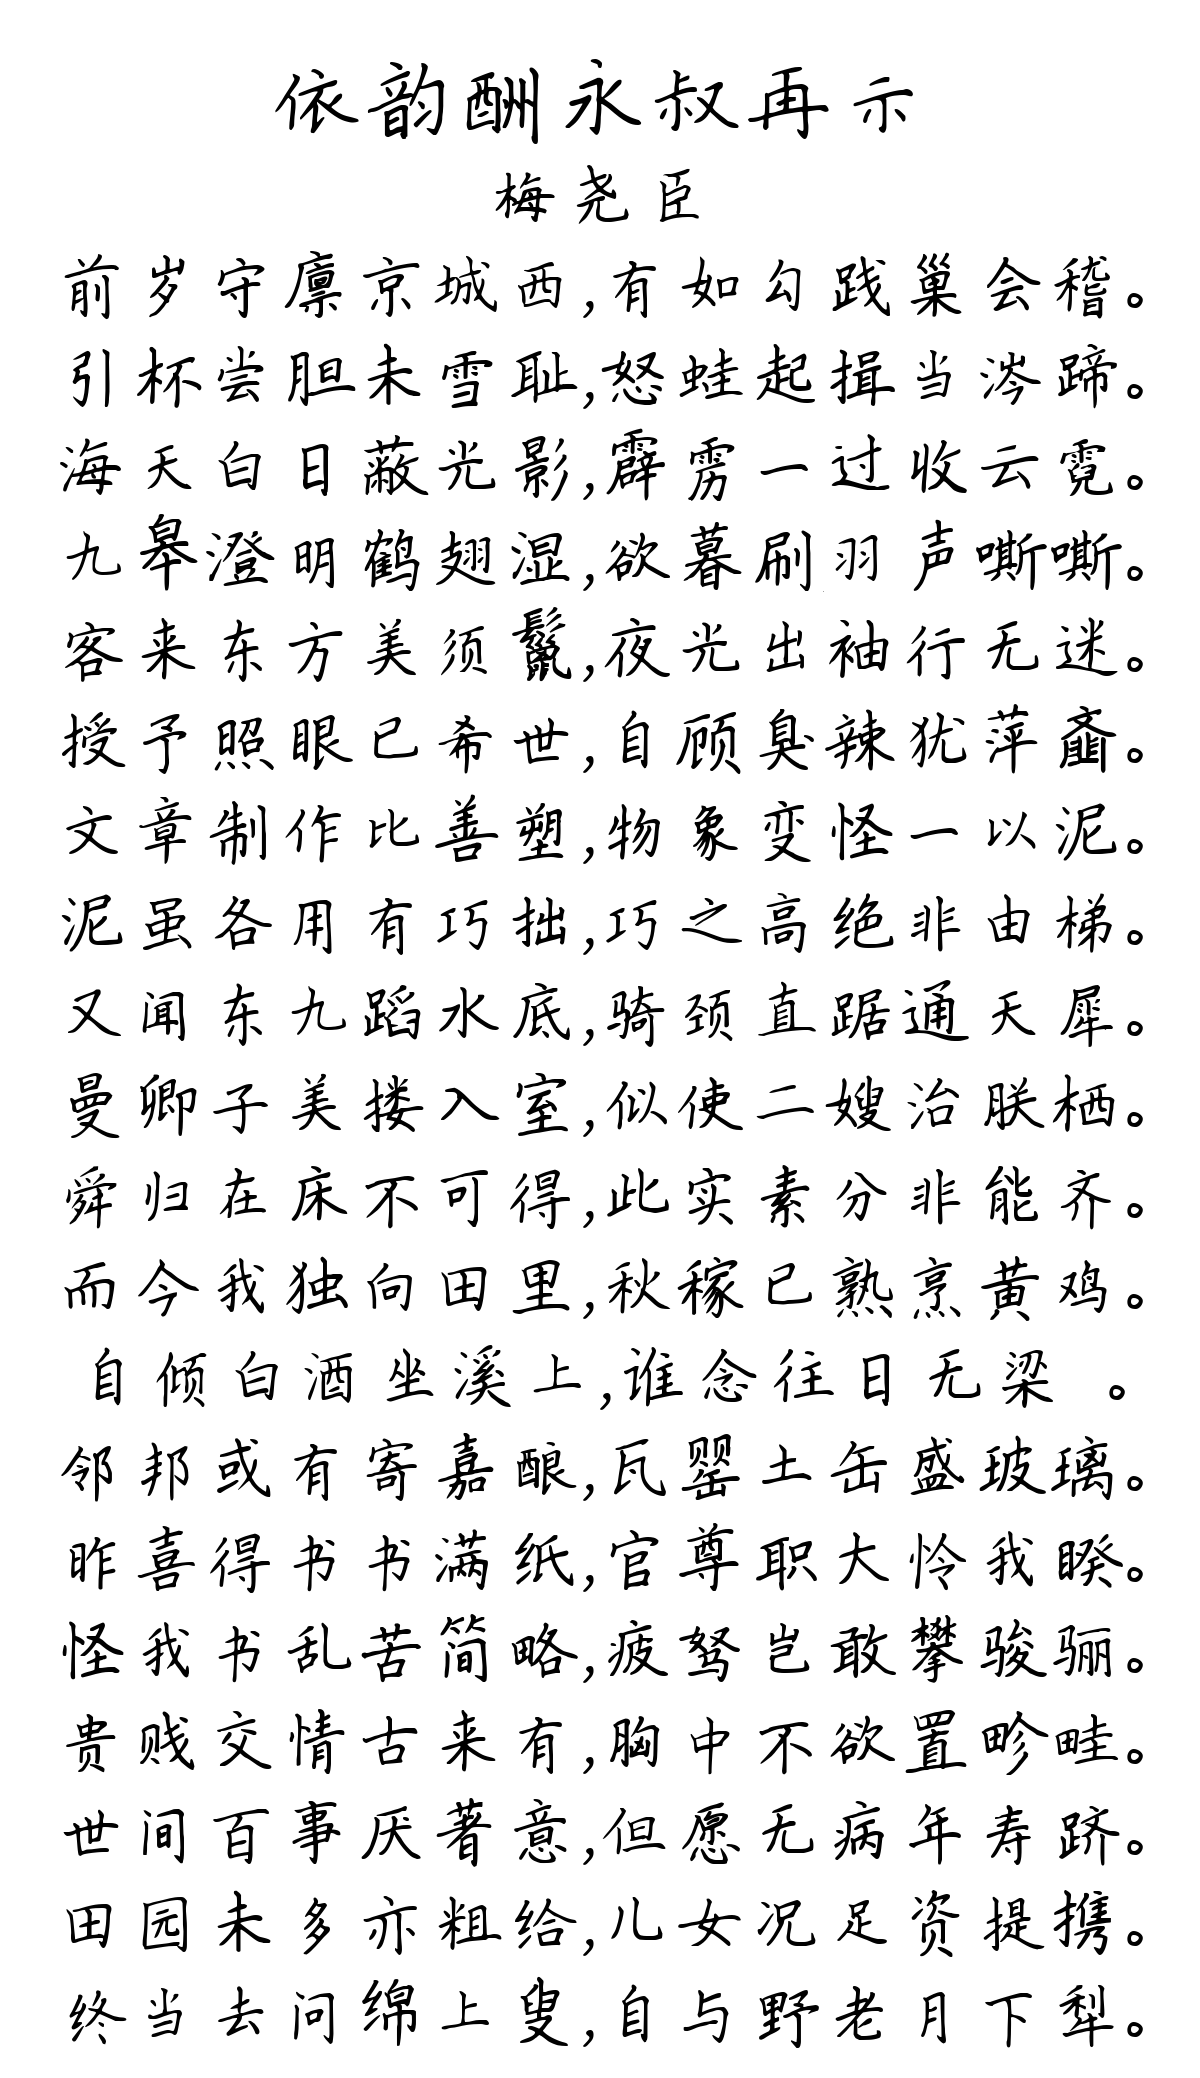 依韵酬永叔再示
梅尧臣
前岁守廪京城西,有如勾践巢会稽。
引杯尝胆未雪耻,怒蛙起揖当涔蹄。
海天白日蔽光影,霹雳一过收云霓。
九皋澄明鹤翅湿,欲暮刷羽声嘶嘶。
客来东方美须鬣,夜光出袖行无迷。
授予照眼已希世,自顾臭辣犹萍齑。
文章制作比善塑,物象变怪一以泥。
泥虽各用有巧拙,巧之高绝非由梯。
又闻东九蹈水底,骑颈直踞通天犀。
曼卿子美搂入室,似使二嫂治朕栖。
舜归在床不可得,此实素分非能齐。
而今我独向田里,秋稼已熟烹黄鸡。
自倾白酒坐溪上,谁念往日无梁 。
邻邦或有寄嘉酿,瓦罂土缶盛玻璃。
昨喜得书书满纸,官尊职大怜我睽。
怪我书乱苦简略,疲驽岂敢攀骏骊。
贵贱交情古来有,胸中不欲置畛畦。
世间百事厌著意,但愿无病年寿跻。
田园未多亦粗给,儿女况足资提携。
终当去问绵上叟,自与野老月下犁。